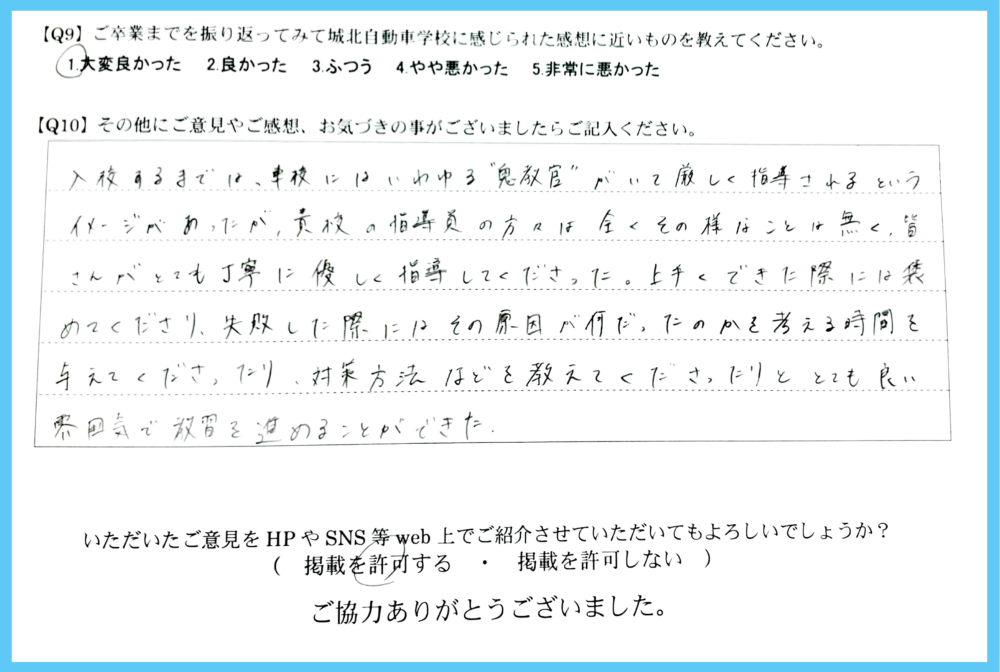 【Q9】ご卒業までを振り返ってみて城北自動車学校に感じられた感想に近いものを教えてください。
1.大変良かった 2.良かった 3.ふつう 4.やや悪かった 5.非常に悪かった
【Q10】その他にご意見やご感想、お気づきの事がございましたらご記入ください。
入校するまでは、車校にはいわゆる"鬼教官"がいて厳しく指導されるという
イメージがあったが、貴校の指導員の方々は全くその様なことは無く、皆
さんがとても丁寧に優しく指導してくださった。上手くできた際には褒
めてくださり、失敗した際にはその原因が何だったのかを考える時間を
与えてくださったり、対策方法などを教えてくださったりと とても良い
雰囲気で教習を進めることができた.
いただいたご意見をHPやSNS等web上でご紹介させていただいてもよろしいでしょうか？
( 掲載を許可する ・ 掲載を許可しない )
ご協力ありがとうございました。